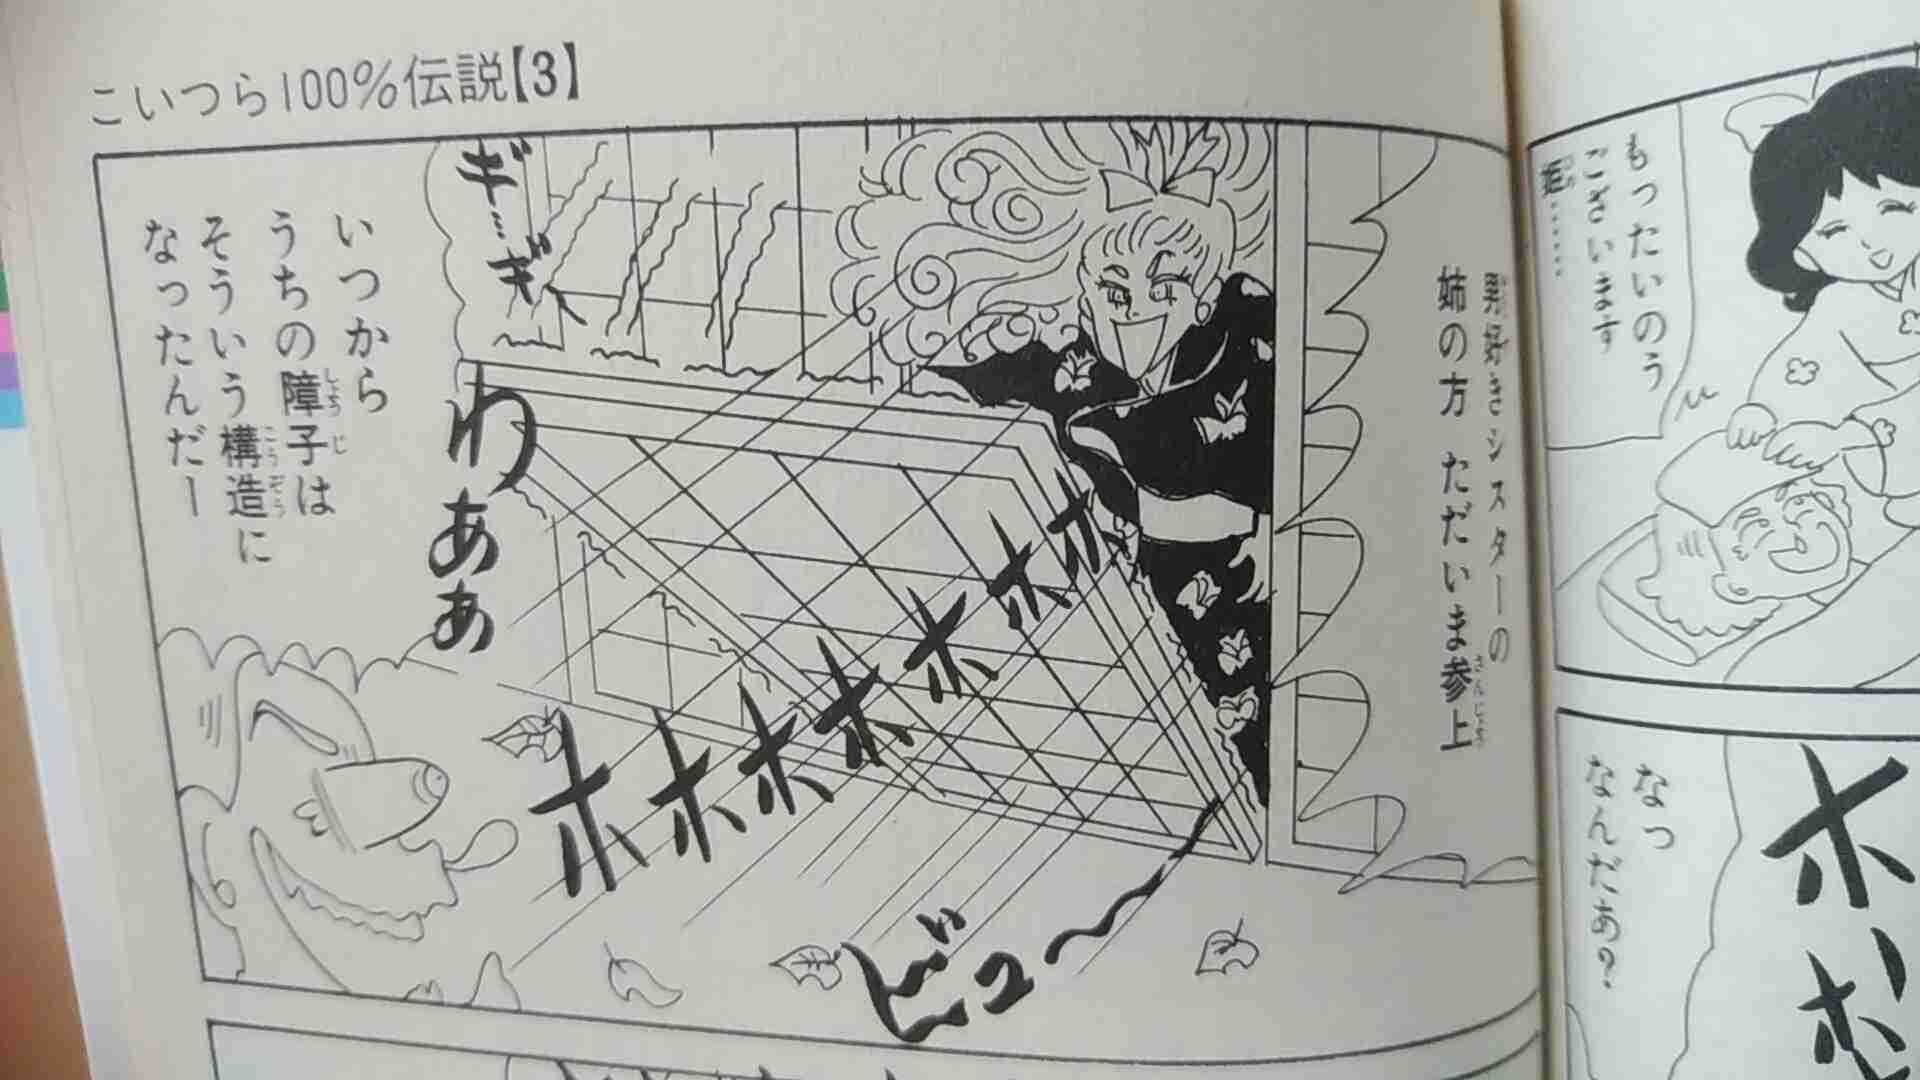 こいつら100%伝説【3】
もったいのう
ございます
姫……
なっ
なんだあ?
ホホ
男好きシスターの
姉の方 ただいま参上
ギ…ギィ
ホホホホホホホ
わああ
ビュー
いつから
うちの障子は
そういう構造に
なったんだー